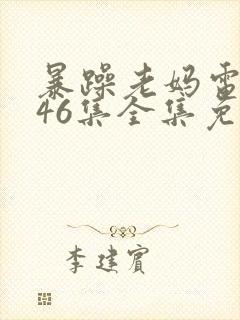 暴躁老妈雷
46集全集免
李建宾